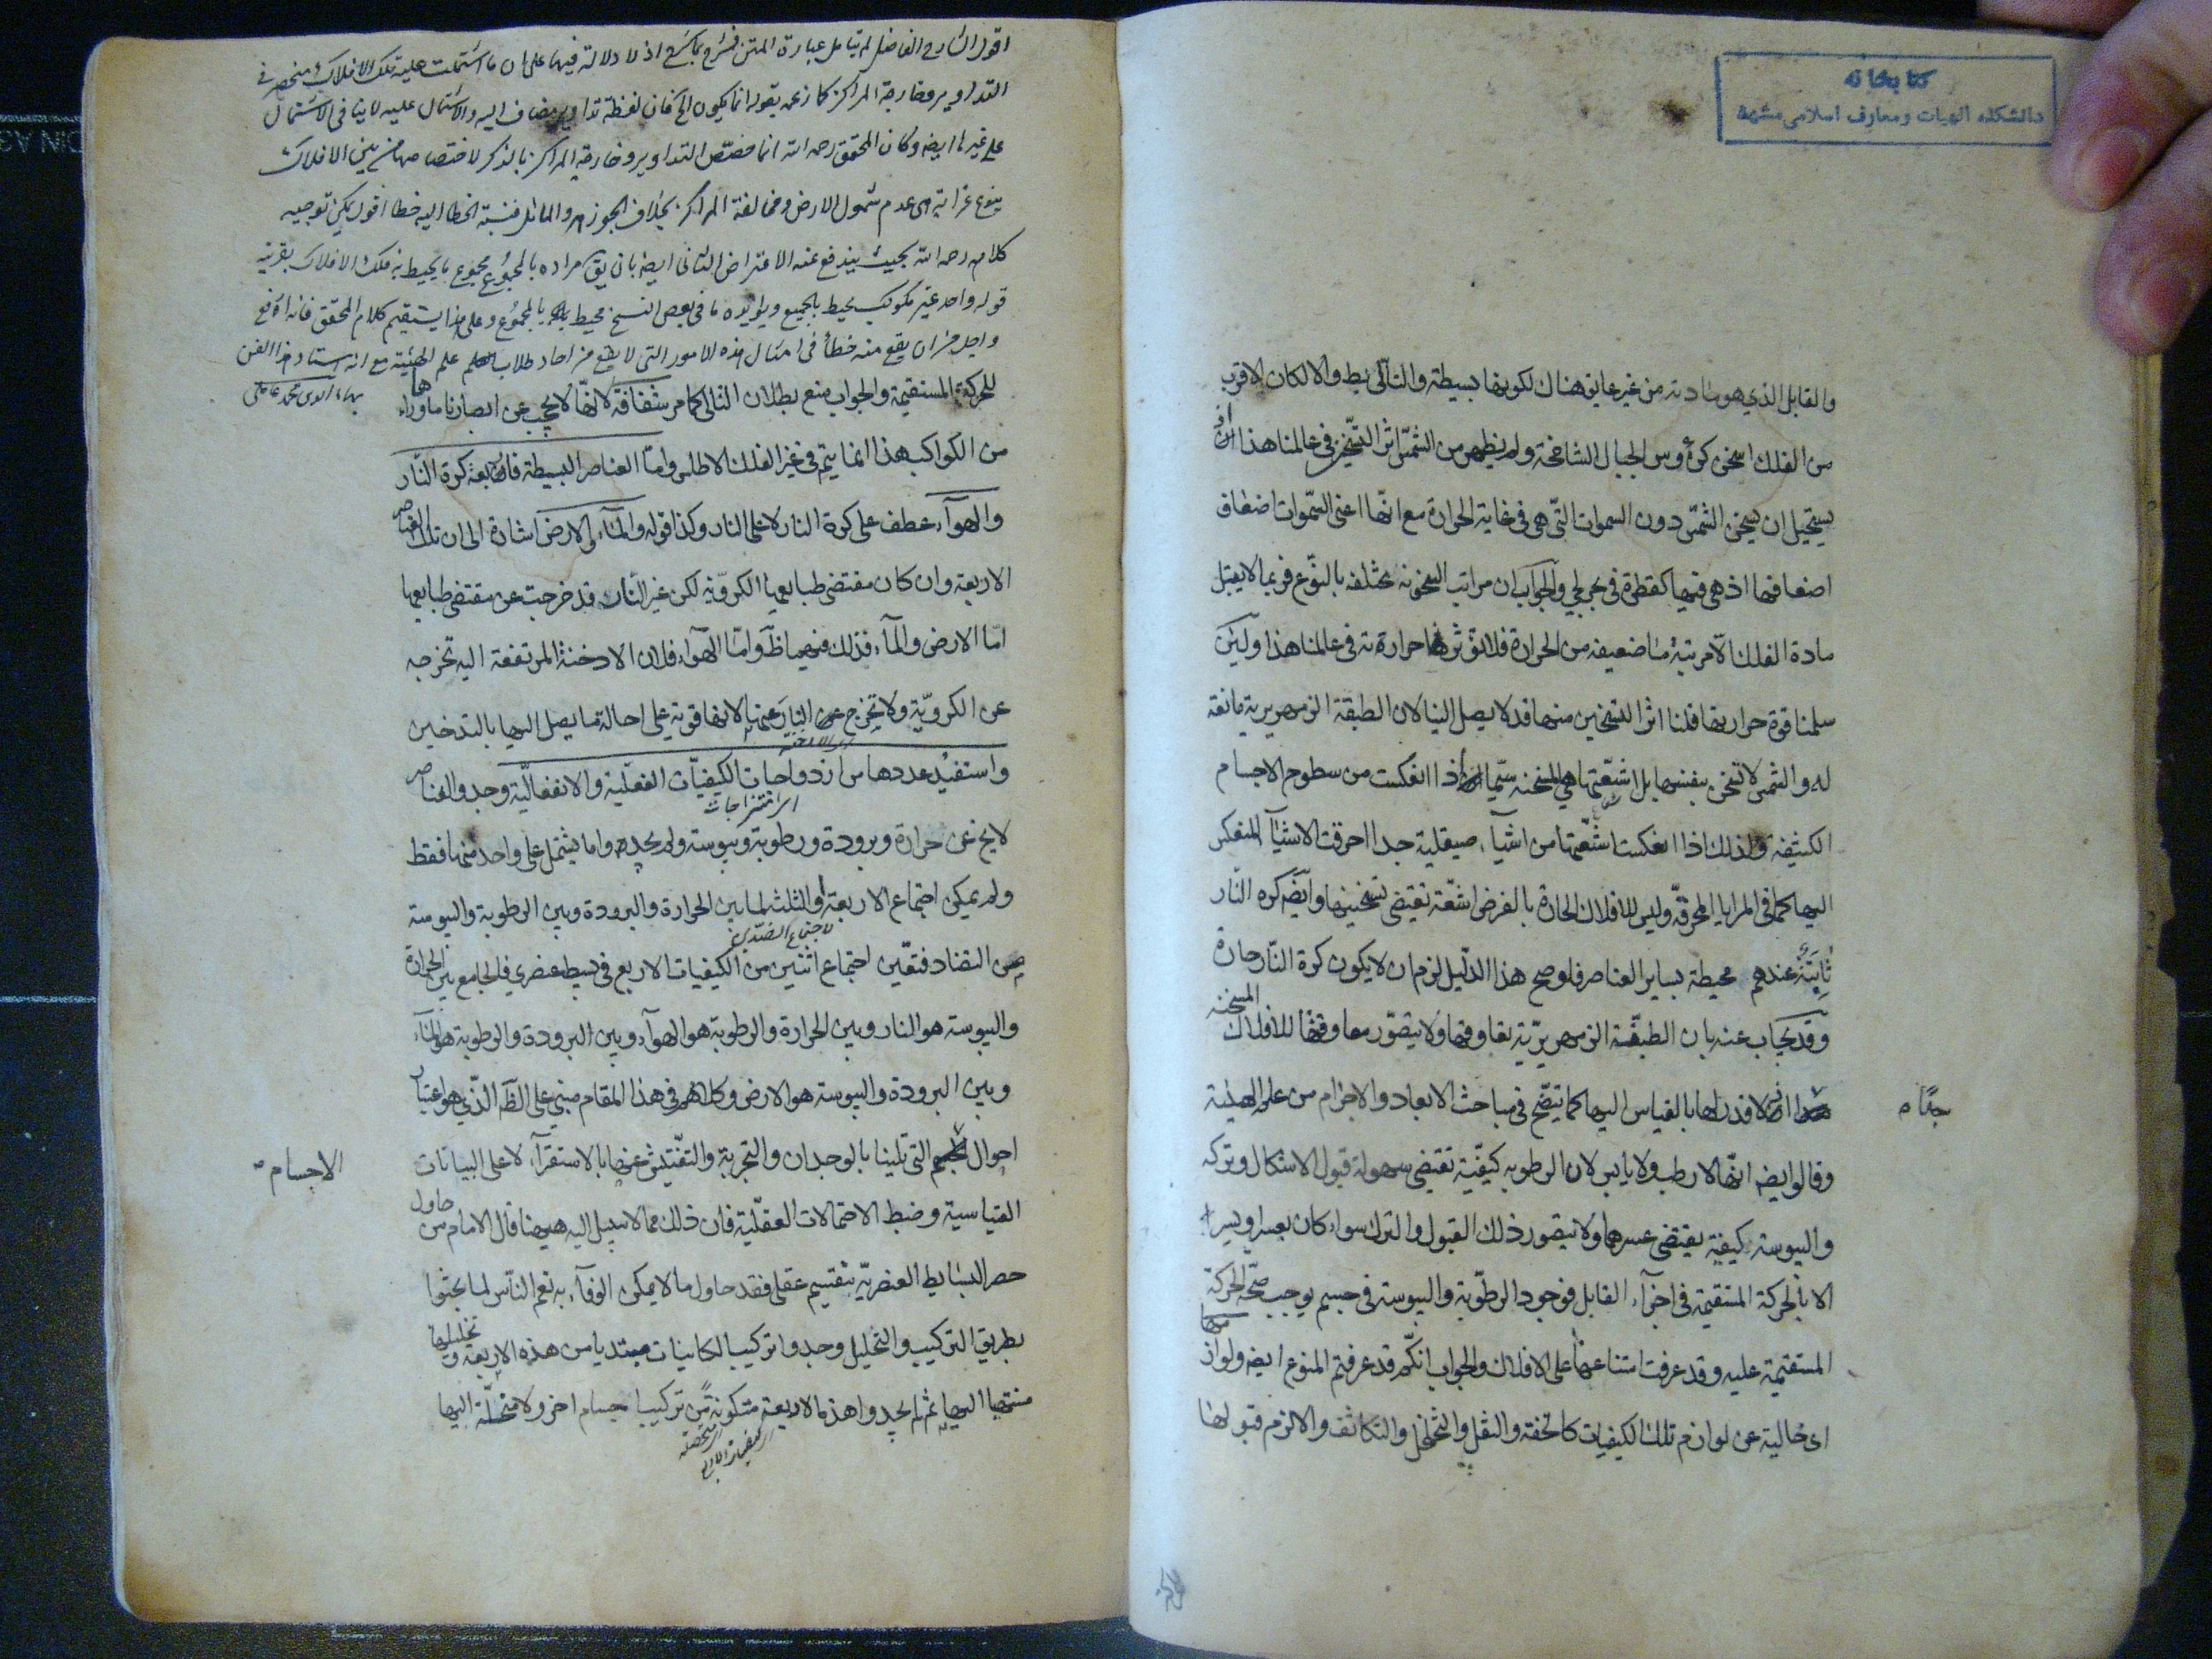 كتابخانه
دانشكده الهيات ومعارف اسلامی مشهد
والقابل الذي هو مادته من غير عايق هناك لكونها بسيطة والتالي بط والا لكان الاقرب
من الفلك اسخن كرؤوس الجبال الشامخة ولم يظهر من الشمس اثر التسخين في عالمنا هذا اذ
يستحيل ان يسخن الشمس دون السموات التي هي في غاية الحرارة مع انها اعنى السموات اضعاف
اضعافها اذ هي فيها كقطرة في بحر لجي والجواب ان مراتب السخونة مختلفة بالنوع فربما لا يقبل
مادة الفلك الا مرتبة ما ضعيفة من الحرارة فلا تؤثر حرارته في عالمنا هذا ولئن
سلمنا قوة حرارتها قلنا اثر التسخين منها قد لا يصل الينا لان الطبقة الزمهريرية مانعة
له والشمس لا تسخن بنفسها بل اشعتها هي المسخنة سيما اذا انعكست من سطوح الاجسام
الكثيفة ولذلك اذا انعكست اشعتها من اشياء صيقلية جدا احرقت الاشياء المنعكس
اليها كما في المرايا المحرقة وليس للافلاك الحارة بالفرض اشعة تقتضى تسخينها وايضا كره النار
ثابتة عندهم محيطة بساير العناصر فلو صح هذا الدليل لزم ان لا يكون كرة النار حارة
المسخنة
وقد يجاب عنه بان الطبقة الزمهريرية تقاومها ولا يتصور معاوقتها للافلاك
جدا
اذ لا قدر لها بالقياس اليها كما يتضح في مباحث الابعاد والاجرام من علم الهيئة
وقالوا ايضا انها لا رطب ولا يابس لان الرطوبه كيفية تقتضى سهولة قبول الاشكال وتركه
واليبوسة كيفية يقتضى عسرهما ولا يتصور ذلك القبول والترك سواء كان بعسر او يسر
الا بالحركة المستقيمة في اجزاء القابل فوجود الرطوبة واليبوسة في جسم يوجب صحة الحركة
المستقيمة عليه وقد عرفت امتناعها على الافلاك والجواب انكم قد عرفتم المنوع ايضا ولوازمها
اى خالية عن لوازم تلك الكيفيات كالخفة والثقل والتخلخل والتكاثف والا لزم قبولها
اقول الشارح الفاضل لم يتامل عبارة المتن فشرح بما شرح اذ لا دلالة فيها على ان ما اشتملت عليه تلك الافلاك منحصر في
التداوير وخارجة المراكز كما زعمه بقوله انما يكون الخ فان لفظة تداوير مضاف اليه والاشتمال عليه لا ينافى الاشتمال
على غيرها ايضا وكان المحقق رحمه الله انما خصص التداوير وخارجة المراكز بالذكر لاختصاصها من بين الافلاك
بنوع غرابة هى عدم شمول الارض ومخالفة المراكز بخلاف الجوزهر والمائل فنسبة الخطا اليه خطا اقول يمكن توجيه
كلامه رحمه الله بحيث يندفع عنه الاعتراض الثانى ايضا بان يق مراده بالمجموع مجموع ما يحيط به فلك الافلاك بقرينة
قوله واحد غير مكوكب محيط بالجميع ويؤيده ما في بعض النسخ محيط بالمجموع وعلى هذا يستقيم كلام المحقق فانه ارفع
واجل من ان يقع منه خطأ فى امثال هذه الامور التى لا يقع من احاد طلاب علم الهيئة مع انه استاد هذا الفن
بهاء الدين محمد عاملى
للحركة المستقيمة والجواب منع بطلان التالي كما مر شفافة لانها لا يحجب عن ابصارنا ما وراءها
من الكواكب هذا انما يتم في غير الفلك الاطلس واما العناصر البسيطة فاربعة كرة النار
والهواء عطف على كرة النار لا على النار وكذا قوله والماء والارض اشارة الى ان تلك العناصر
الاربعة وان كان مقتضى طبايعها الكروية لكن غير النار قد خرجت عن مقتضى طبايعها
اما الارض والماء فذلك فيهما ظ واما الهواء فلان الادخنة المرتفعة اليه تخرجه
عن الكروية ولا تخرج النار عنها لانها قوية على احالة ما يصل اليها بالتدخين
واستفيد عددها من ازدواجات الكيفيات الفعلية والانفعالية وجدوا العناصر
اى امتزاجات
لا يخ عن حرارة وبرودة ورطوبة ويبوسة ولم يجدوا ما يشتمل على واحد منها فقط
ولم يمكن اجتماع الاربعة او الثلث لما بين الحرارة والبرودة وبين الرطوبة واليبوسة
لاجتماع الضدين
من التضاد فتعين اجتماع اثنين من الكيفيات الاربع في بسيط عنصري فالجامع بين الحرارة
واليبوسة هو النار وبين الحرارة والرطوبة هو الهواء وبين البرودة والرطوبة هو الماء
وبين البرودة واليبوسة هو الارض وكلامهم في هذا المقام مبني على الظاهر الذي هو اعتبار
الاجسام
احوال التى تلينا بالوجدان والتجربة والتفتيش عنها بالاستقراء لا على البيانات
القياسية وضبط الاحتمالات العقلية فان ذلك مما لا سبيل اليه ههنا قال الامام من حاول
حصر البسايط العنصرية بتقسيم عقلى فقد حاول ما لا يمكن الوفاء به نعم الناس لما بحثوا
بطريق التركيب والتحليل وجدوا تركيب الكاينات مبتديا من هذه الاربعة وتحليلها
منتهيا اليها ثم لم يجدوا هذه الاربعة متكونة من تركيب اجسام اخر ولا منحلة اليها